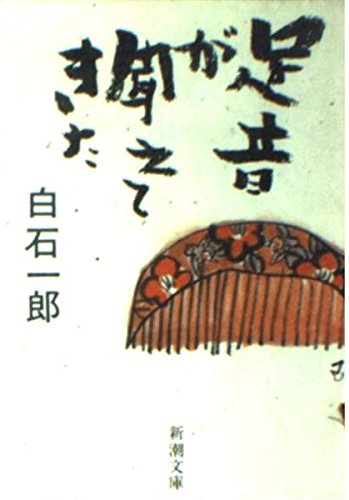 足音
が
聞えて
きた
白石一郎
新潮文庫